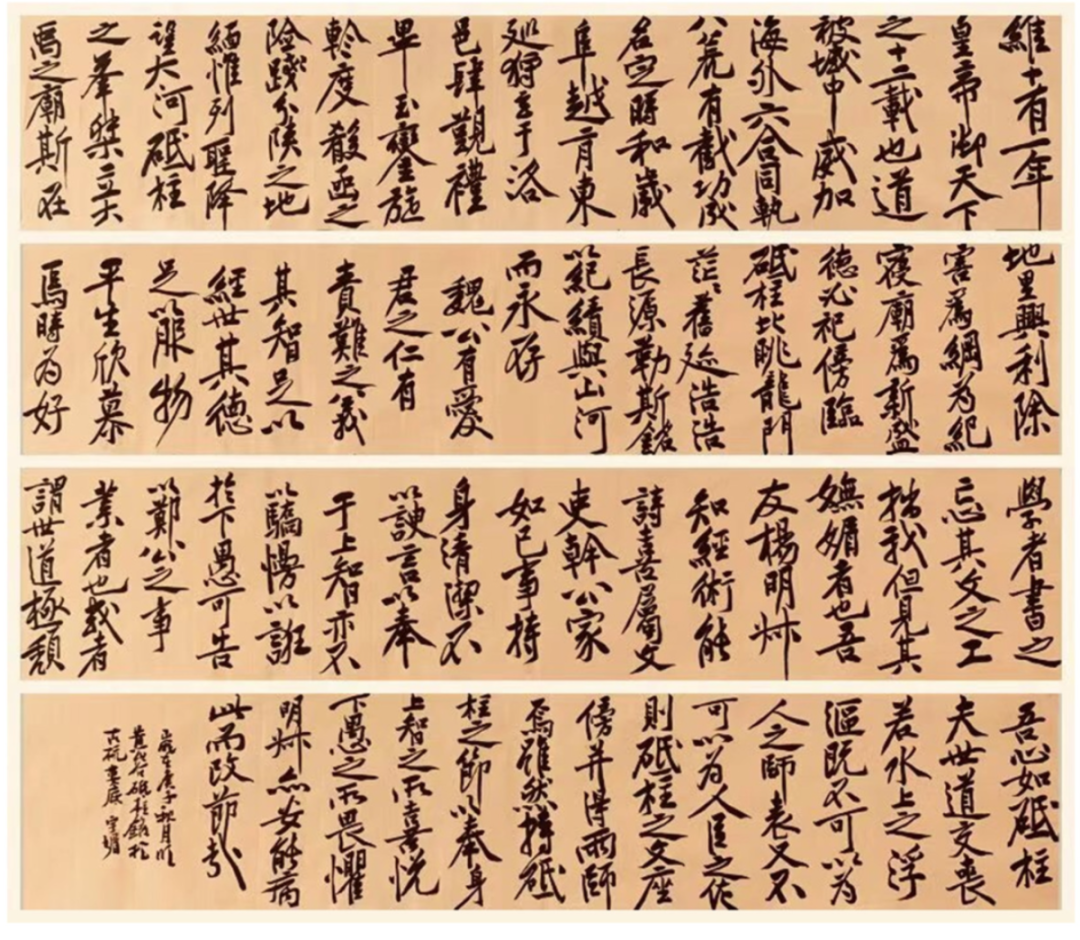 維十有一年
皇帝御天下
之十二載也道
被域中威加
海外六合同軌
八荒有截功成
名定時和歲
阜越二月東
巡狩至于洛
邑肆覲禮
畢玉鑾旋
軫度殽函之
險踐分陝之地
緬惟列聖降
望大河砥柱
之峯桀立大
禹之廟斯在
地里興利除
害爲綱为紀
寢廟爲新盛
德必祀傍臨
砥柱北眺龍門
茫〻舊迹浩浩
長源勒斯銘
以紀績與山河
而永存
魏公有愛
君之仁有
責難之義
其智足以
經世其德
足以服物
平生欣慕
焉時为好
學者書之
忘其文之工
拙我但見其
嫵媚者也吾
友楊明叔
知經術能
詩喜屬文
吏幹公家
如己事持
身清潔不
以諛言以奉
于上智亦不
以驕慢以誑
於下愚可告
以鄭公之事
業者也或者
謂世道極頹
吾心如砥柱
夫世道交喪
若水上之浮
漚既不可以为
人之師表又不
可以为人臣之佐
則砥柱之文座
傍并得兩師
焉雖然持砥
柱之節以奉身
上智之所喜悅
下愚之所畏懼
明叔亦安能病
此而改節哉
歲在庚子秋月臨
黃山谷砥柱銘於